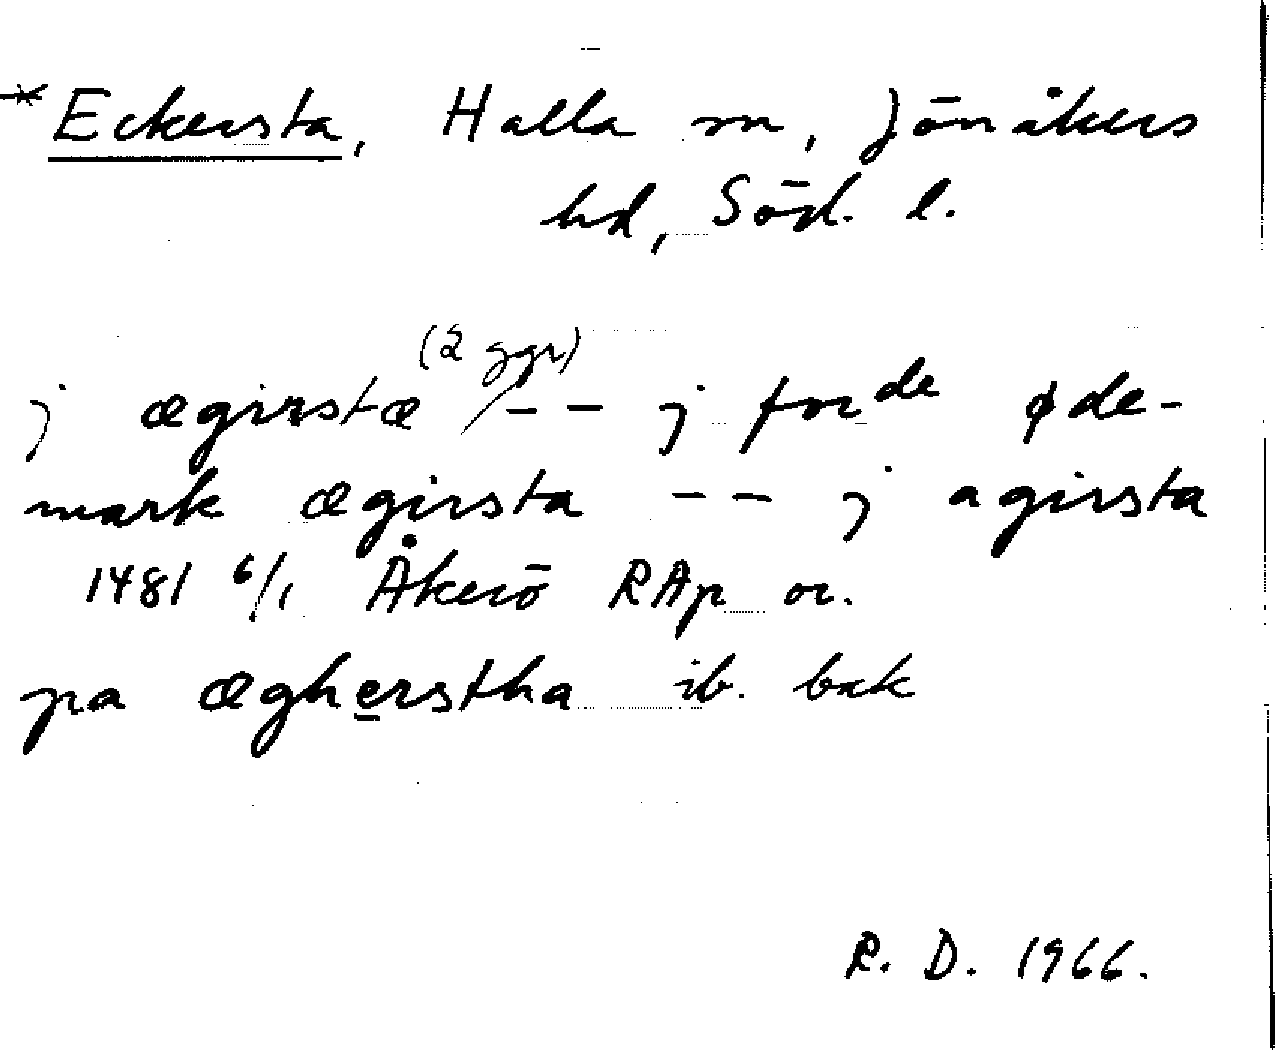 *Eckersta, Halla sn, Jönåkers
hd, Söd. l.
j ægirstæ (2 ggr) -- j forde øde-
mark ægirsta -- j agirsta
1481 6/1 Åkerö RAp or.
pa ægherstha ib. bak
R. D. 1966.